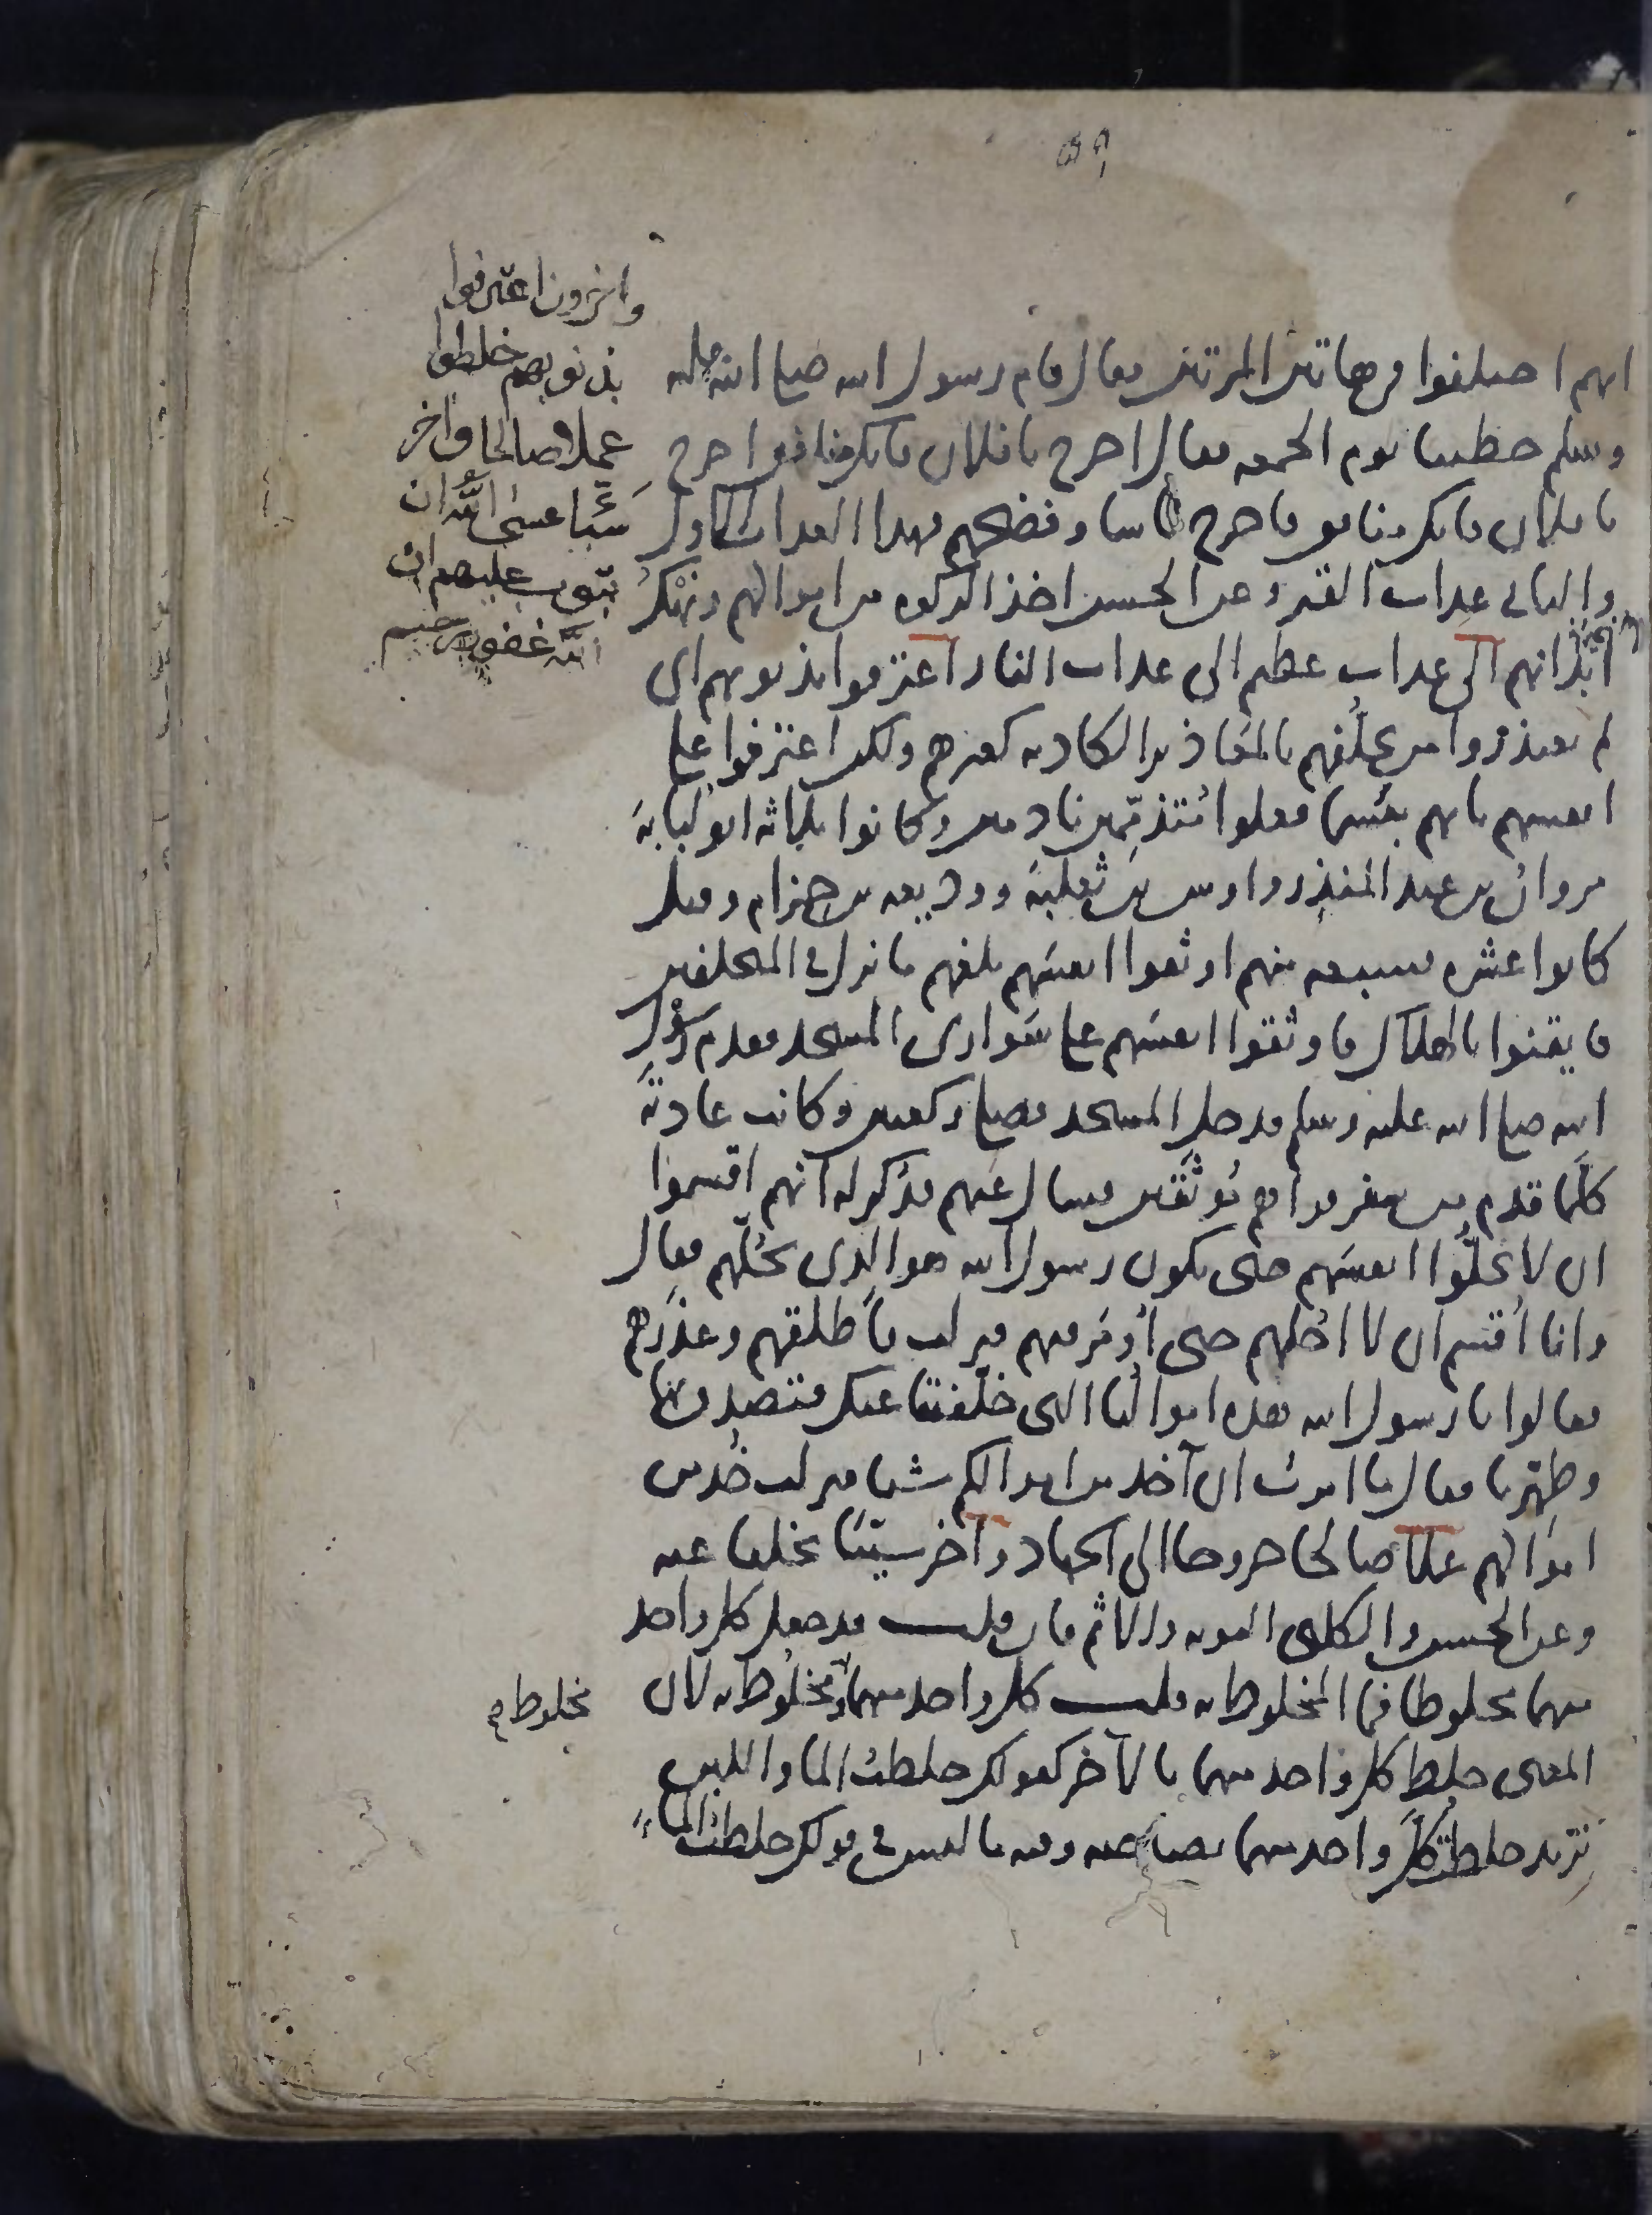 ٥٩
انهم اختلفوا في هاتين المرتين فقال قام رسول الله صلى الله عليه
وسلم خطيبا يوم الجمعه فقال اخرج يا فلان فانك منافق اخرج
يا فلان فانك منافق فاخرج ناسا وفضحهم فهذا العذاب الاول
والثاني عذاب القبر وعن الحسن اخذ الزكوه من اموالهم ونهك
ابدانهم الى عذاب عظيم الى عذاب النار اعترفوا بذنوبهم اى
لم يعتذروا من تخلفهم بالمعاذير الكاذبه كغيرهم ولكن اعترفوا على
انفسهم بانهم بئسما فعلوا متذممين نادمين وكانوا ثلاثه ابو لبابة
مروان بن عبد المنذر واوس بن ثعلبة ووديعه بن حزام وقيل
كانوا عشره فسبعه منهم اوثقوا انفسهم بلغهم ما نزل في المتخلفين
فايقنوا بالهلاك فاوثقوا انفسهم على سوارى المسجد فقدم رسول
الله صلى الله عليه وسلم فدخل المسجد فصلى ركعتين وكانت عادته
كلما قدم من سفر فراهم موثقين فسال عنهم فذكر له انهم اقسموا
ان لا يحلوا انفسهم حتى يكون رسول الله هو الذى يحلهم فقال
وانا اقسم ان لا احلهم حتى اومر فيهم فنزلت فاطلقهم وعذرهم
فقالوا يا رسول الله هذه اموالنا التى خلفتنا عنك فتصدق بها
وطهرنا فقال ما امرت ان آخذ من اموالكم شيا فنزلت خذ من
اموالهم عملا صالحا خروجا الى الجهاد وآخر سيئا تخلفا عنه
وعن الحسن والكلبى التوبه والاثم فان قلت قد جعل كل واحد
منهما مخلوطا فما المخلوط به قلت كل واحد منهما مخلوط ومخلوط به لان
المعنى خلط كل واحد منهما بالآخر كقولك خلطت الماء واللبن
تريد خلطت كل واحد منهما بصاحبه وفيه ما ليس في قولك خلطت الماء
وآخرون اعترفوا
بذنوبهم خلطوا
عملا صالحا وآخر
سيئا عسى الله ان
يتوب عليهم ان
الله غفور رحيم
مخلوط م